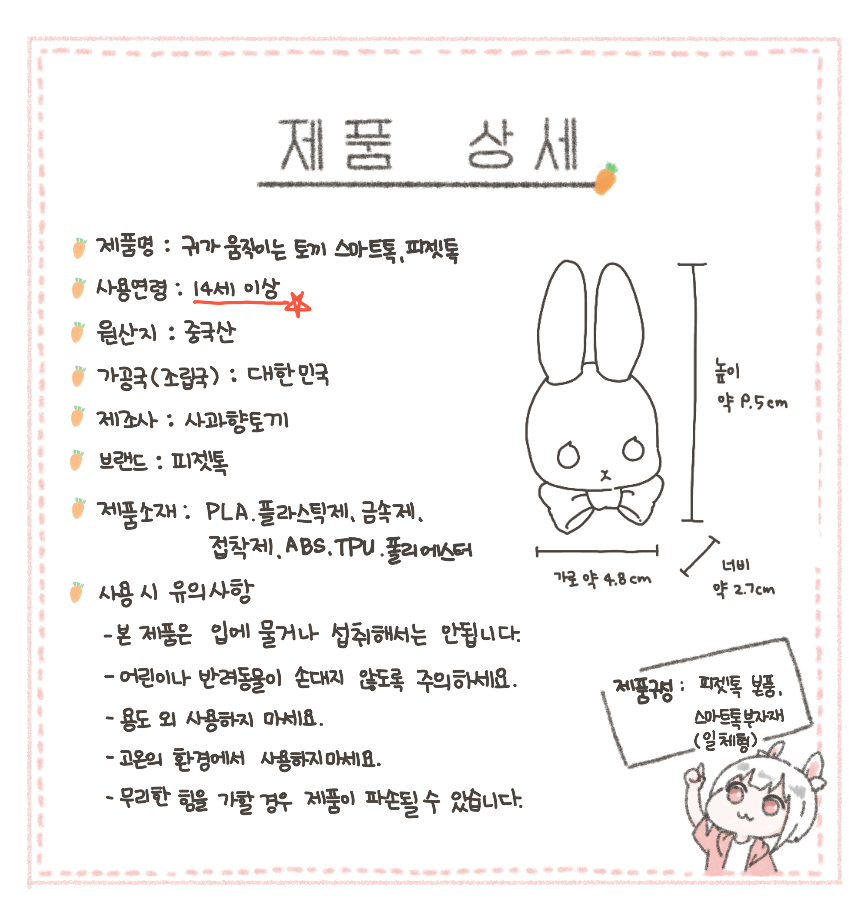 제품 상세
제품명 : 귀가 움직이는 토끼 스마트톡, 피젯톡
사용연령 : 14세 이상
원산지 : 중국산
가공국(조립국) : 대한민국
제조사 : 사과향토끼
브랜드 : 피젯톡
제품소재 : PLA. 플라스틱제, 금속제,
접착제, ABS. TPU. 폴리에스터
사용 시 유의사항
- 본 제품은 입에 물거나 섭취해서는 안됩니다.
- 어린이나 반려동물이 손대지 않도록 주의하세요.
- 용도 외 사용하지 마세요.
- 고온의 환경에서 사용하지마세요.
- 무리한 힘을 가할 경우 제품이 파손될 수 있습니다.
높이
약 9.5cm
가로 약 4.8cm
너비
약 2.7cm
제품구성 : 피젯톡 본품,
스마트톡부자재
(일체형)